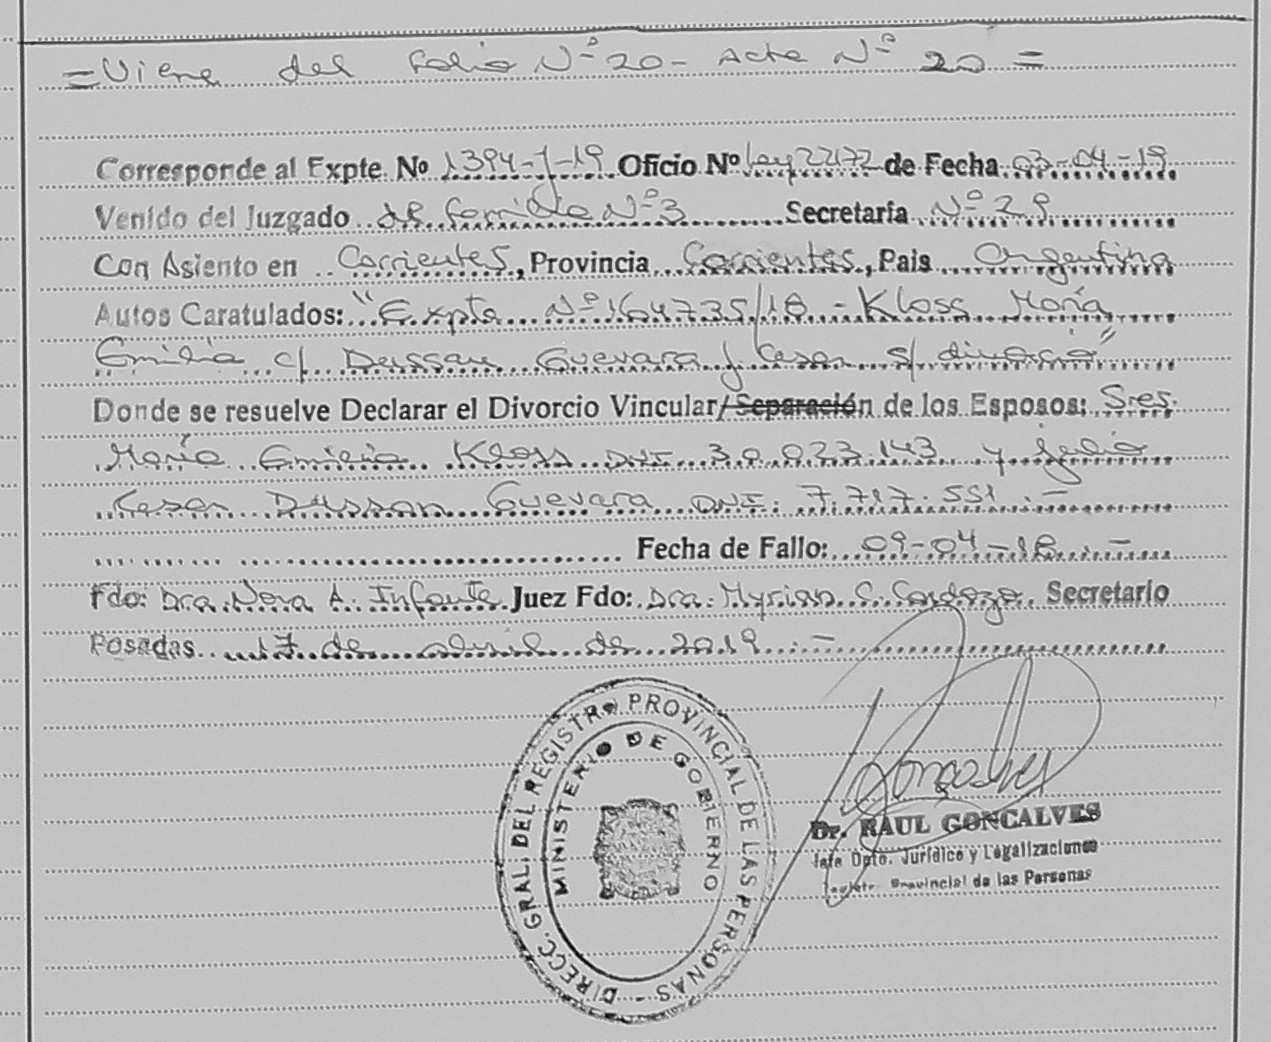 = Viene del folio Nº 20 - Acta Nº 20 =
Corresponde al Expte. Nº 1394-J-19 Oficio Nº Ley 22172 de Fecha 03-04-19
Venido del Juzgado de familia Nº 3 Secretaría Nº 29
Con Asiento en Corrientes, Provincia Corrientes, Pais Argentina
Autos Caratulados: "Expte Nº 164735/18 - Kloss María
Emilia c/ Dussan Guevara J. Cesar s/ divorcio"
Donde se resuelve Declarar el Divorcio Vincular/Separación de los Esposos: Sres
María Emilia Kloss DNI 30.023.143 y Julio
Cesar Dussan Guevara DNI: 7.717.551.-
Fecha de Fallo: 09-04-18.-
Fdo: Dra. Nora A. Infante Juez Fdo: Dra. Myrian C. Cardozo. Secretario
Posadas 17 de abril de 2019.-
DIRECC. GRAL. DEL REGISTRO PROVINCIAL DE LAS PERSONAS -
MINISTERIO DE GOBIERNO
Goncalves
Dr. RAUL GONCALVES
Jefe Dpto. Jurídico y Legalizaciones
Registro Provincial de las Personas